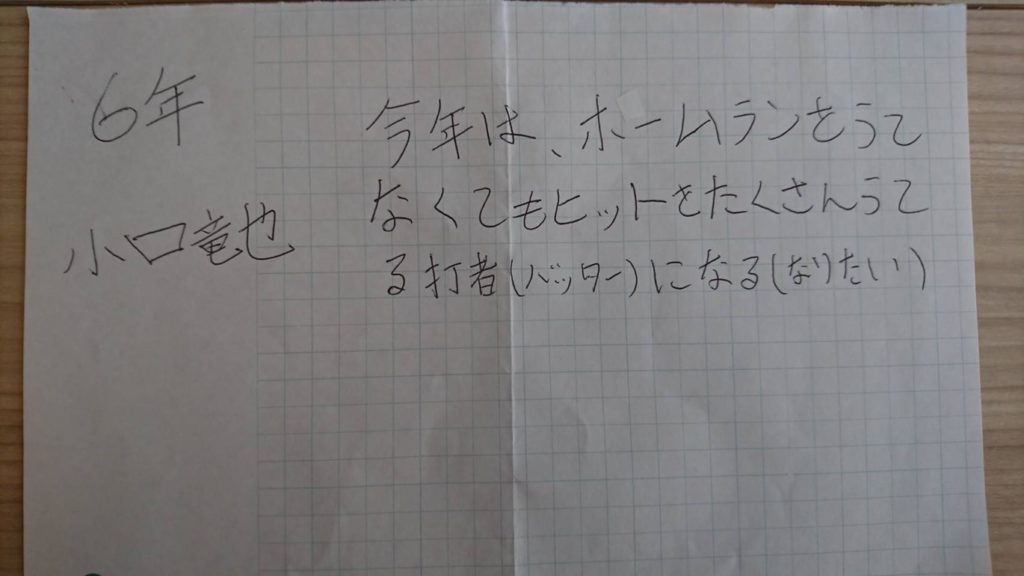 6年
小口竜也
今年は、ホームランをうて
なくてもヒットをたくさんうて
る打者(バッター)になる(なりたい)